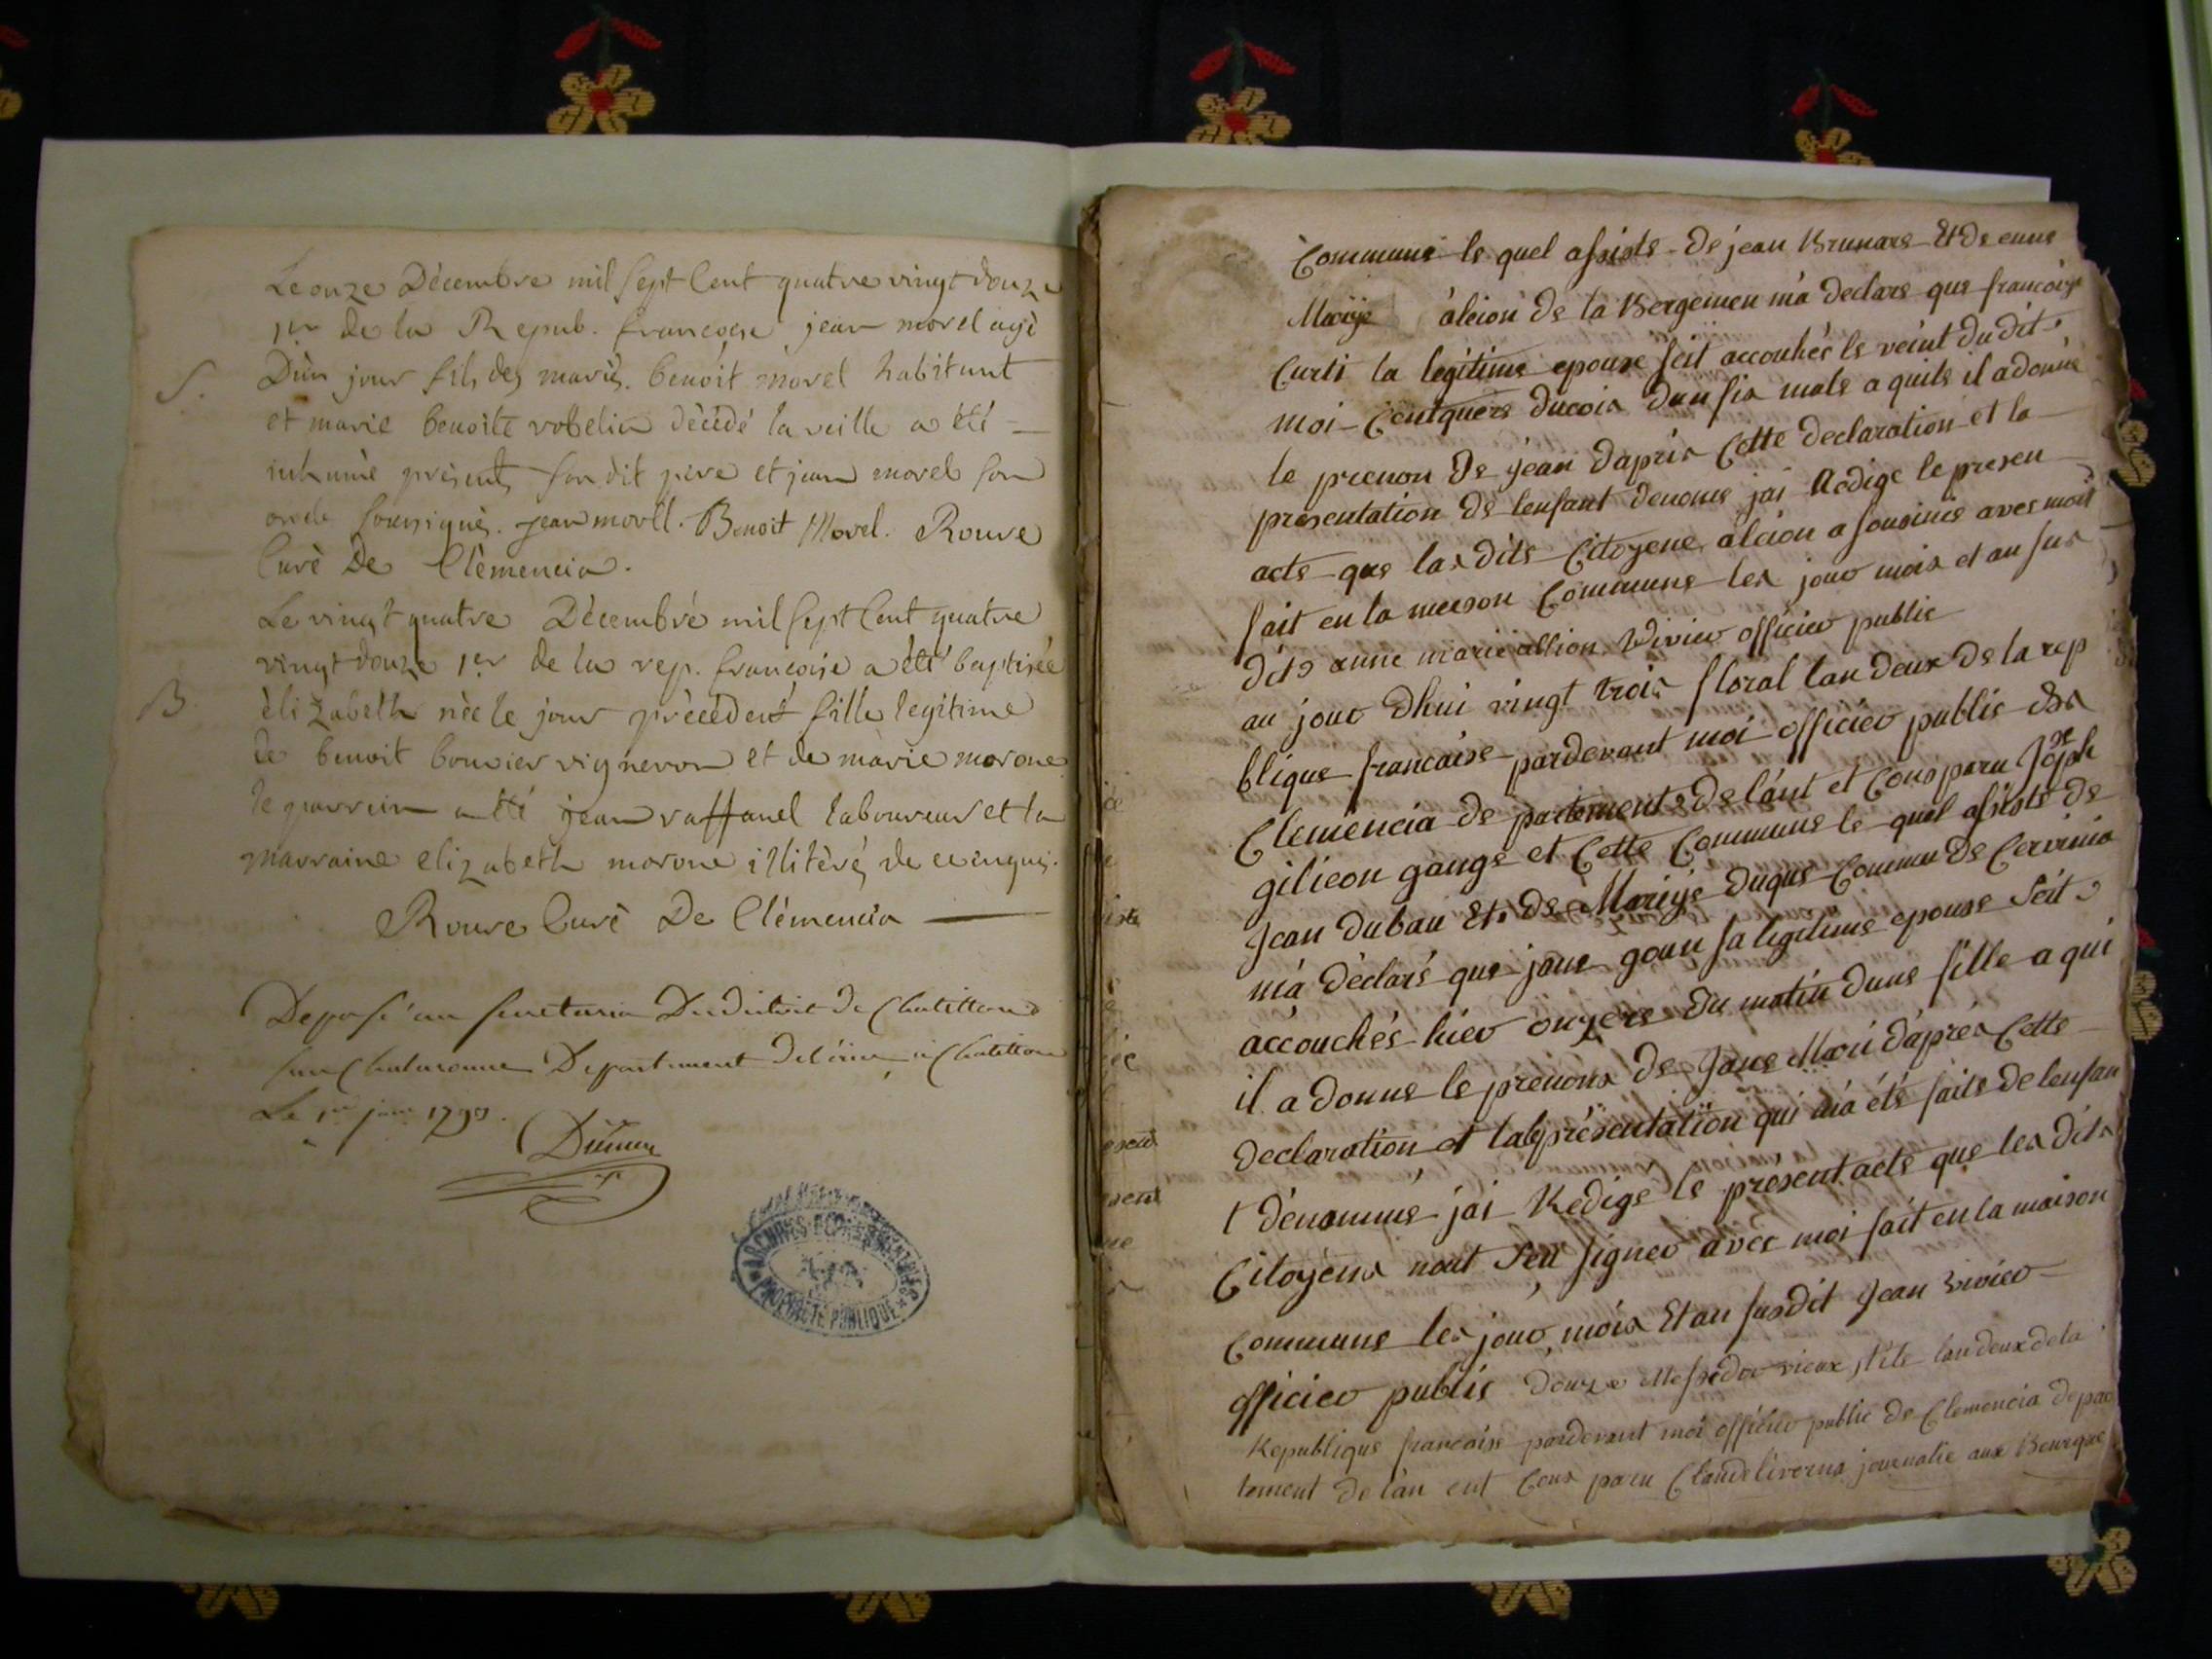 Le onze Décembre mil sept Cent quatre vingt douze
1er de la Repub. francoise jean morel agé
S. D'un jour fils des mariés. benoit morel habitant
et marie benoite robelin décédé la veille a été
inhumé présents son dit pere et jean morel son
oncle soussignés. jean morell. Benoit Morel. Rouve
Curé De Clémencia.
Le vingt quatre Décembre mil sept Cent quatre
vingt douze 1er de la rep. francoise a été baptisée
B. élizabeth née le jour précédent fille legitime
de benoit bouvier vigneron et de marie morone
le parrein a été jean raffanel laboureur et la
marraine elizabeth morone illitérés de ce enquis.
Rouve Curé De Clémencia
Deposé au secretaria Du district de Chatillon
sur Chalaronne Departement de l'ain a Chatillon
Le 1er 1793.
ARCHIVES DEPARTEMENTALES
PROPRIETE PUBLIQUE
Commune le quel asiste de jean Brunare Et de enne
Mariye aleion de la Bergemen m'a declare que francoise
Curti la legitime epouse seit accouhés le veint du dit
moi Centquers ducois dun fis male a quils il a donné
le prenon de jean d'apris Cette declaration et la
presentation de lenfant denome jai Redige le presen
acte que las dits Citoyene aleion a sousinie aves moi
fait en la meeson Commune les jour mois et an sus
dits anne marie allion Vivier officier public
au jour dhui vingt trois floral lan deux de la rep
blique francaise pardevant moi officier public de
Clemencia de partement de l'ant et Conparu Joseph
gilieon gange et Cette Commune le quel asiste de
Jean dubau Et de Mariye duque Commu de Cervinia
m'a déclaré que jane goun sa ligitime epouse seit
accouchés hier onzere du matin dune fille a qui
il a donne le prenons de Jane Mari d'aprés Cette
declaration et la présentation qui m'a été faite de lenfan
t dénommé jai Redige le présent acte que les dits
Citoyens nont seu signer avec moi fait en la maison
Commune les jour mois Et an susdit Jean Vivier
officier public douze Messidor vieux stile lan deux de la
Republique francaise pardevant moi officier public de Clemencia depar
tement de lan ent Cons paru Claude liverna journalie aux Bourque